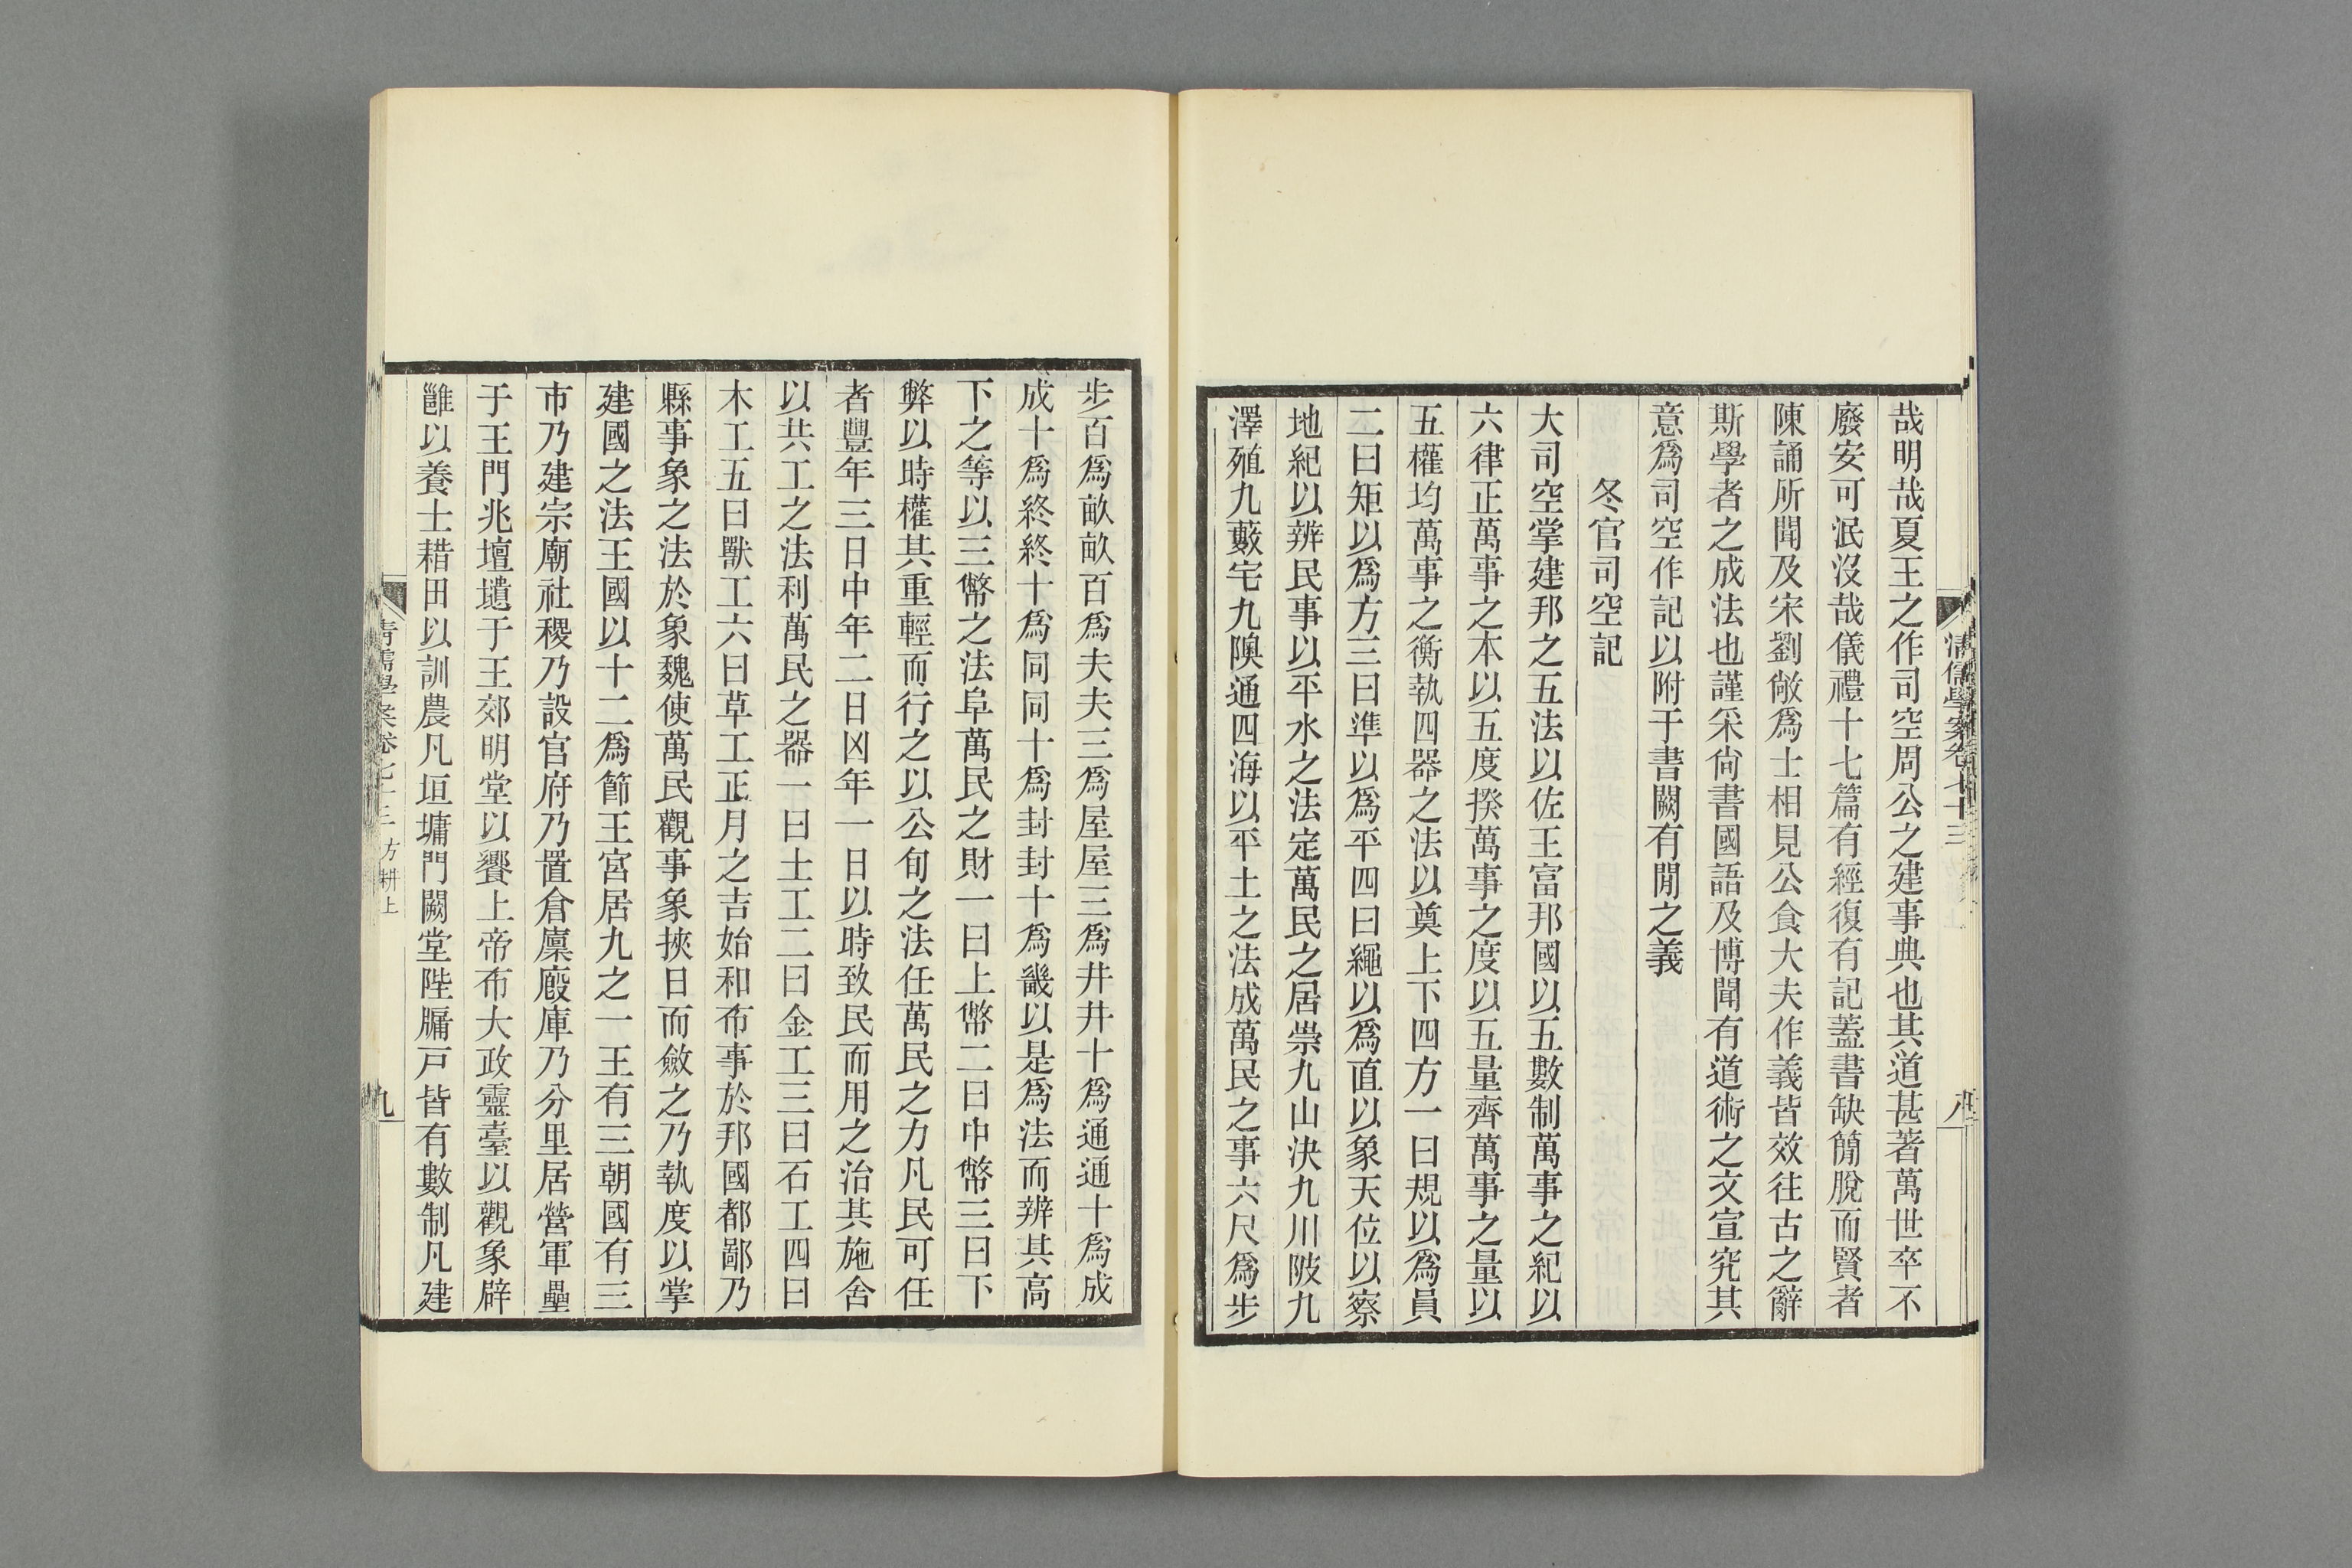 哉明哉夏王之作司空周公之建事典也其道甚著萬世卒不
廢安可泯沒哉儀禮十七篇有經復有記蓋書缺簡脫而賢者
陳誦所聞及宋劉敞爲士相見公食大夫作義皆效往古之辭
斯學者之成法也謹采尙書國語及博聞有道術之文宣究其
意爲司空作記以附于書闕有閒之義
冬官司空記
大司空掌建邦之五法以佐王富邦國以五數制萬事之紀以
六律正萬事之本以五度揆萬事之度以五量齊萬事之量以
五權均萬事之衡執四器之法以奠上下四方一曰規以爲員
二曰矩以爲方三曰準以爲平四曰繩以爲直以象天位以察
地紀以辨民事以平水之法定萬民之居崇九山決九川陂九
澤殖九藪宅九隩通四海以平土之法成萬民之事六尺爲步
清儒學案卷七十三
八
步百爲畝畝百爲夫夫三爲屋屋三爲井井十爲通通十爲成
成十爲終終十爲同同十爲封封十爲畿以是爲法而辨其高
下之等以三幣之法阜萬民之財一曰上幣二曰中幣三曰下
弊以時權其重輕而行之以公旬之法任萬民之力凡民可任
者豐年三日中年二日凶年一日以時致民而用之治其施舍
以共工之法利萬民之器一曰土工二曰金工三曰石工四曰
木工五曰獸工六曰草工正月之吉始和布事於邦國都鄙乃
縣事象之法於象魏使萬民觀事象挾日而斂之乃執度以掌
建國之法王國以十二爲節王宮居九之一王有三朝國有三
市乃建宗廟社稷乃設官府乃置倉廩廄庫乃分里居營軍壘
于王門兆壇壝于王郊明堂以饗上帝布大政靈臺以觀象辟
雝以養士耤田以訓農凡垣墉門闕堂陛牖戸皆有數制凡建
清儒學案卷七十三 方耕上
九